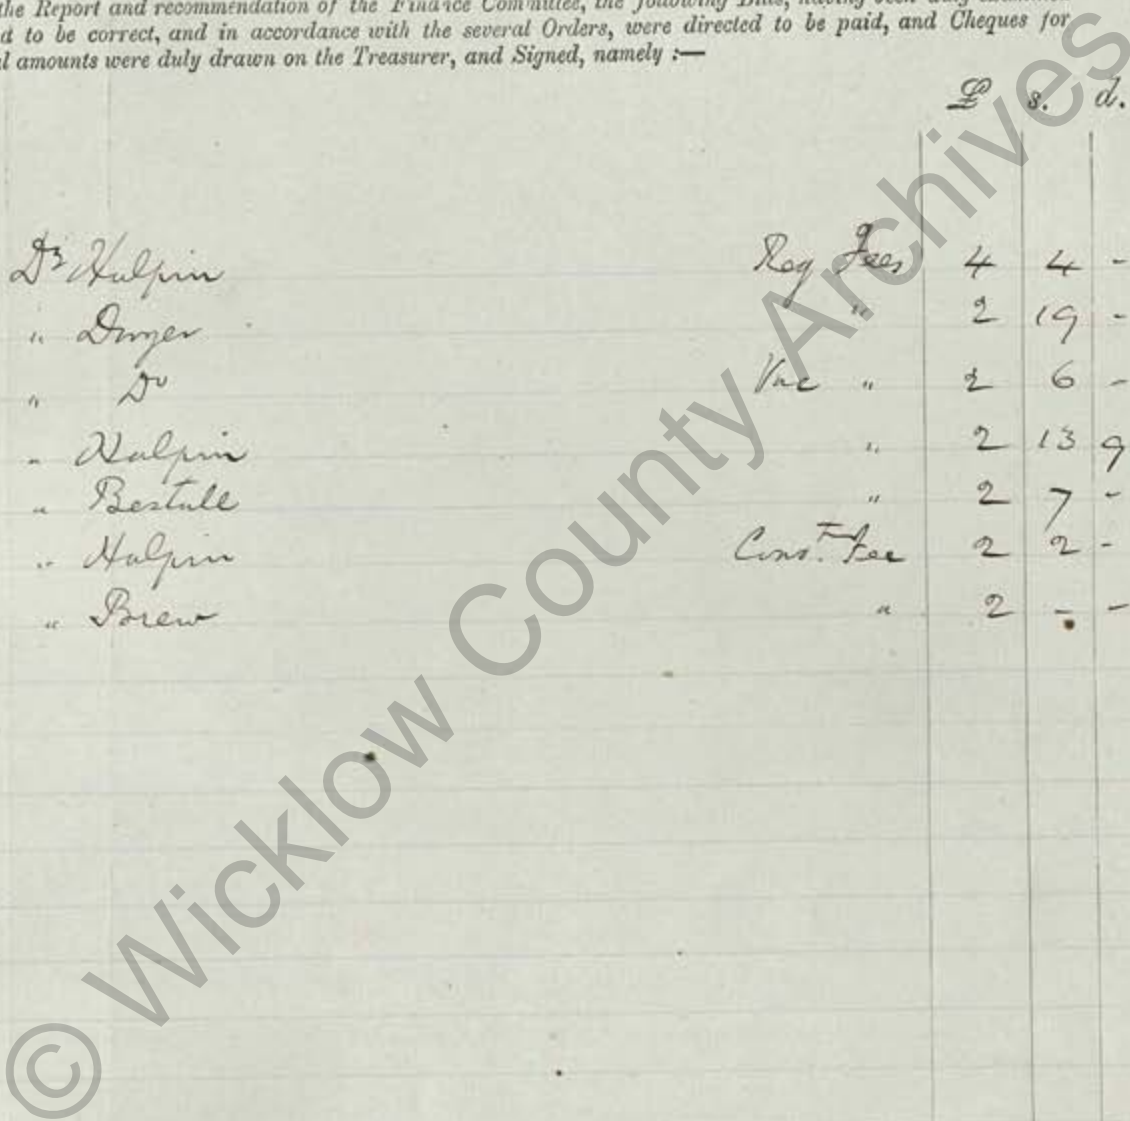 the Report and recommendation of the Finance Committee, the following Bills, having been duly
d to be correct, and in accordance with the several Orders, were directed to be paid, and Cheques for
l amounts were duly drawn on the Treasurer, and Signed, namely :—
£ s. d.
Dr Halpin Reg Fees 4 4 -
" Dwyer " 2 19 -
" Do Vac " 2 6 -
" Halpin " 2 13 9
" Bestall " 2 7 -
" Halpin Const. Fee 2 2 -
" Brew " 2 - -
© Wicklow County Archives